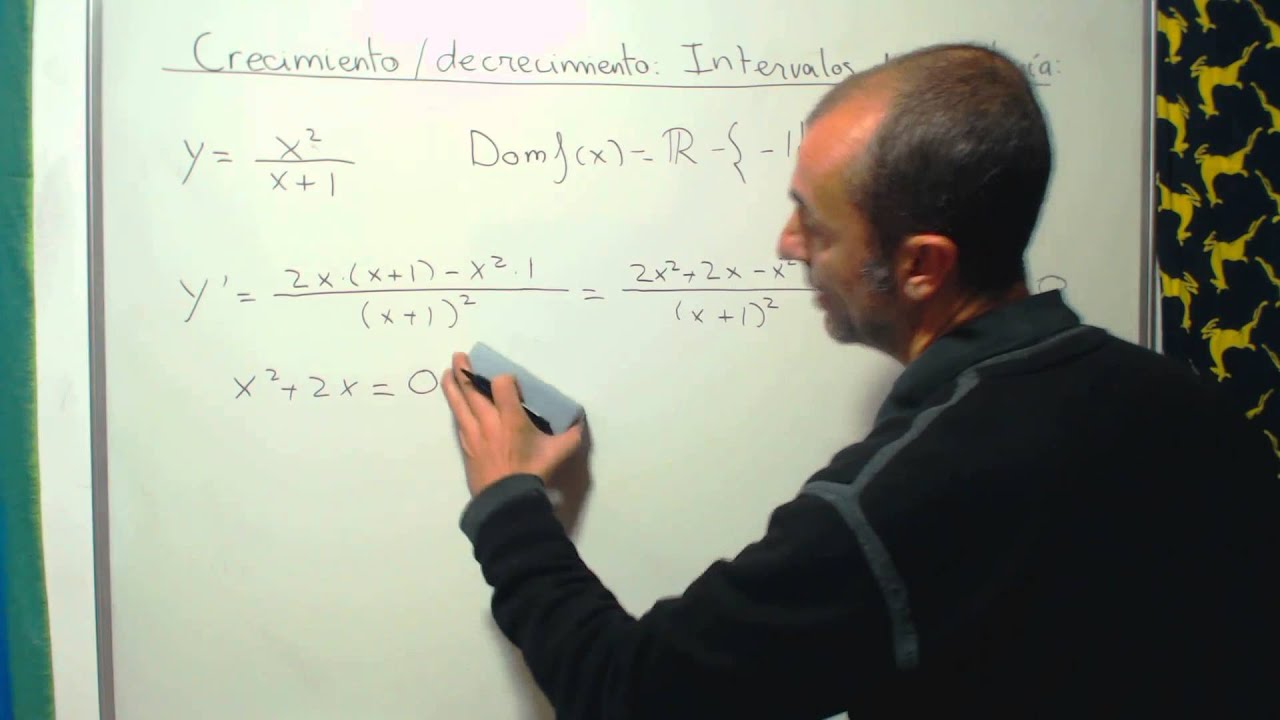 Crecimiento / decrecimiento: Intervalos
y = x² / x + 1    Dom f(x) = ℝ - { -1
y' = 2x·(x+1) - x²·1 / (x+1)² = 2x² + 2x - x² / (x+1)²
x² + 2x = 0